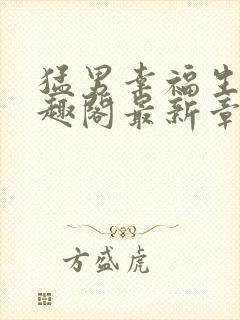 猛男幸福生
趣阁最新章
方盛虎